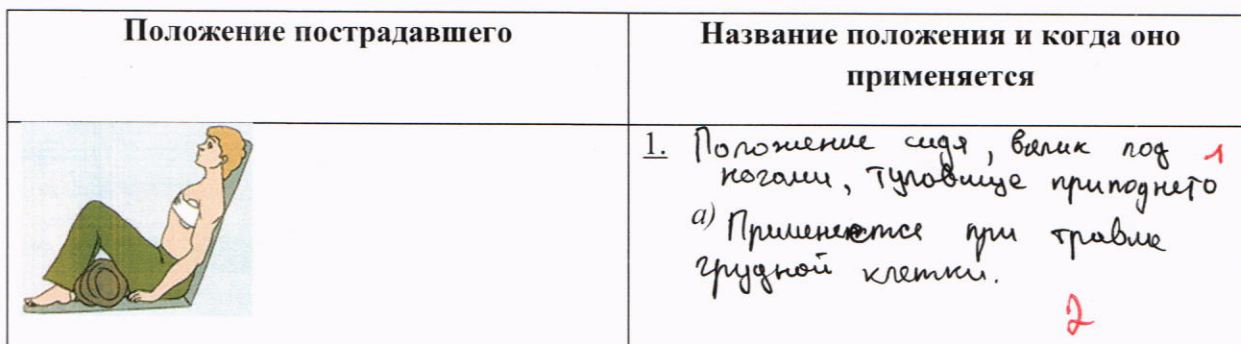 Положение пострадавшего
Название положения и когда оно
применяется
1. Положение сидя, валик под 1
ногами, туловище приподнето
а) Применяется при травме
грудной клетки.
2